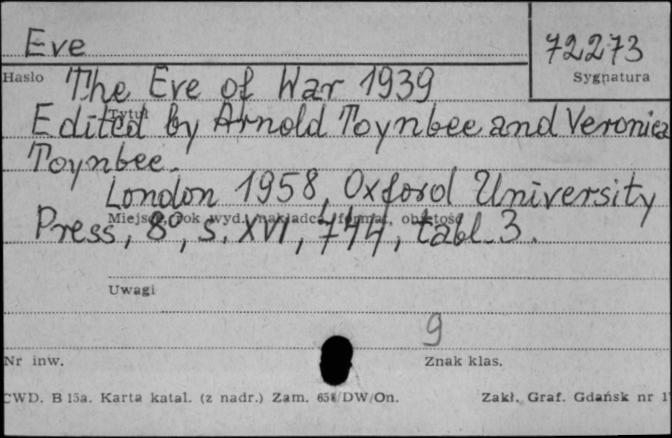 Eve
72273
Hasło
Sygnatura
The Eve of War 1939
Tytuł
Edited by Arnold Toynbee and Veronica
Toynbee.
London 1958, Oxford University
Miejsce, rok wyd., nakładca, format, objętość
Press, 8°, s. XVI, 744, tabl. 3.
Uwagi
9
Nr inw.
Znak klas.
CWD. B 15a. Karta katal. (z nadr.) Zam. 658/DW/On.
Zakł. Graf. Gdańsk nr